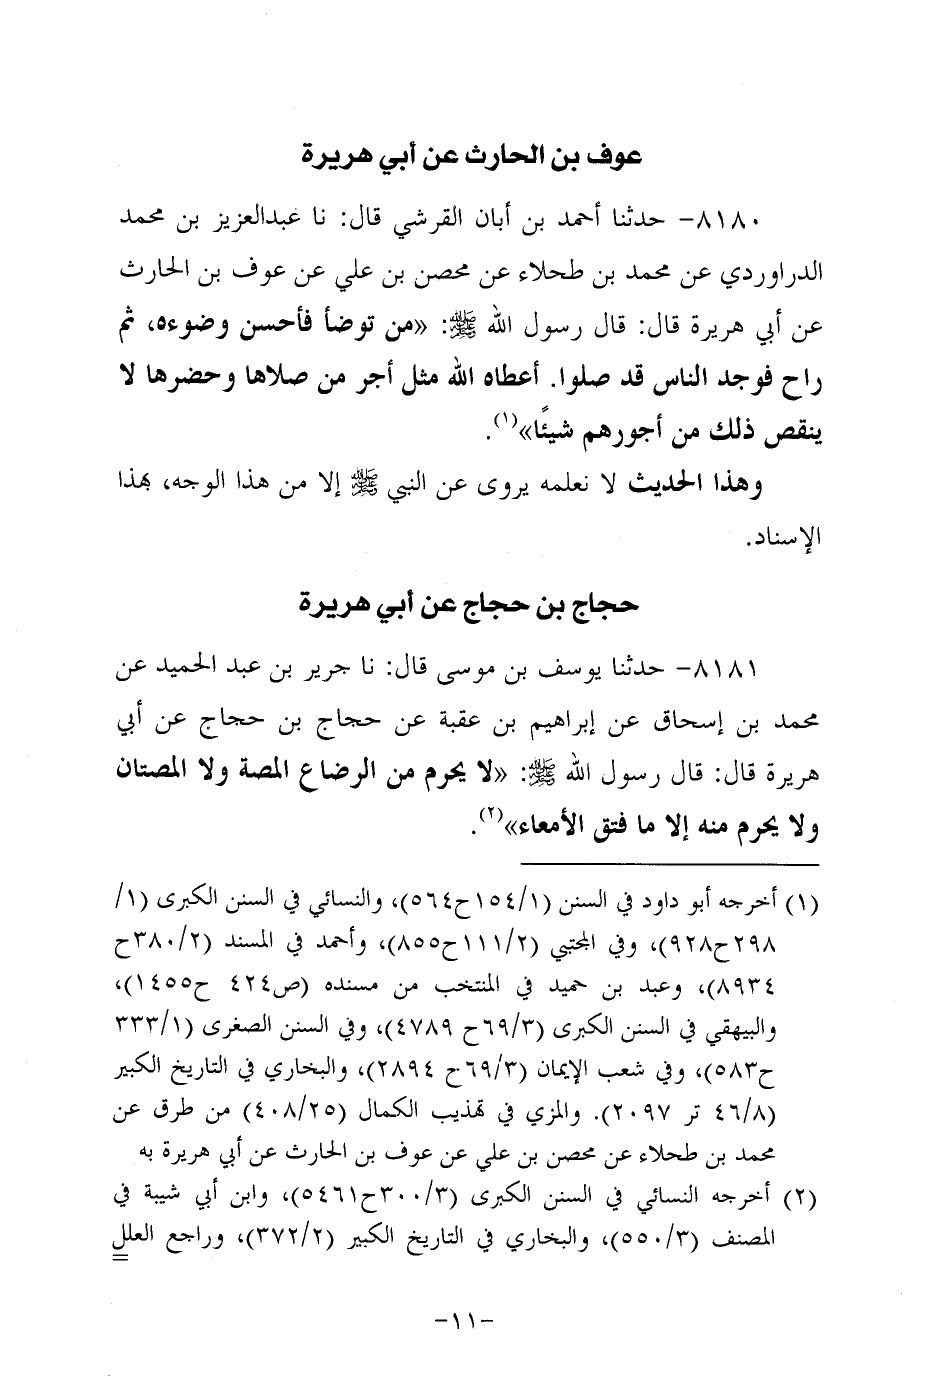 عوف بن الحارث عن أبي هريرة
٨١٨٠– حدثنا أحمد بن أبان القرشي قال: نا عبدالعزيز بن محمد
الدراوردي عن محمد بن طحلاء عن محصن بن علي عن عوف بن الحارث
عن أبي هريرة قال: قال رسول الله ﷺ: «من توضأ فأحسن وضوءه، ثم
راح فوجد الناس قد صلوا. أعطاه الله مثل أجر من صلاها وحضرها لا
ينقص ذلك من أجورهم شيئًا»(١).
وهذا الحديث لا نعلمه يروى عن النبي ﷺ إلا من هذا الوجه، بهذا
الإسناد.
حجاج بن حجاج عن أبي هريرة
٨١٨١– حدثنا يوسف بن موسى قال: نا جرير بن عبد الحميد عن
محمد بن إسحاق عن إبراهيم بن عقبة عن حجاج بن حجاج عن أبي
هريرة قال: قال رسول الله ﷺ: «لا يحرم من الرضاع المصة ولا المصتان
ولا يحرم منه إلا ما فتق الأمعاء»(٢).
(١) أخرجه أبو داود في السنن (١/١٥٤ح٥٦٤)، والنسائي في السنن الكبرى (١/
٢٩٨ح٩٢٨)، وفي المجتبي (٢/١١١ح٨٥٥)، وأحمد في المسند (٢/٣٨٠ح
٨٩٣٤)، وعبد بن حميد في المنتخب من مسنده (ص٤٢٤ ح١٤٥٥)،
والبيهقي في السنن الكبرى (٣/٦٩ح ٤٧٨٩)، وفي السنن الصغرى (١/٣٣٣
ح٥٨٣)، وفي شعب الإيمان (٣/٦٩ح ٢٨٩٤)، والبخاري في التاريخ الكبير
(٨/٤٦ تر ٢٠٩٧). والمزي في تهذيب الكمال (٢٥/٤٠٨) من طرق عن
محمد بن طحلاء عن محصن بن علي عن عوف بن الحارث عن أبي هريرة به
(٢) أخرجه النسائي في السنن الكبرى (٣/٣٠٠ح٥٤٦١)، وابن أبي شيبة في
المصنف (٣/٥٥٠)، والبخاري في التاريخ الكبير (٢/٣٧٢)، وراجع العلل
=
–١١–